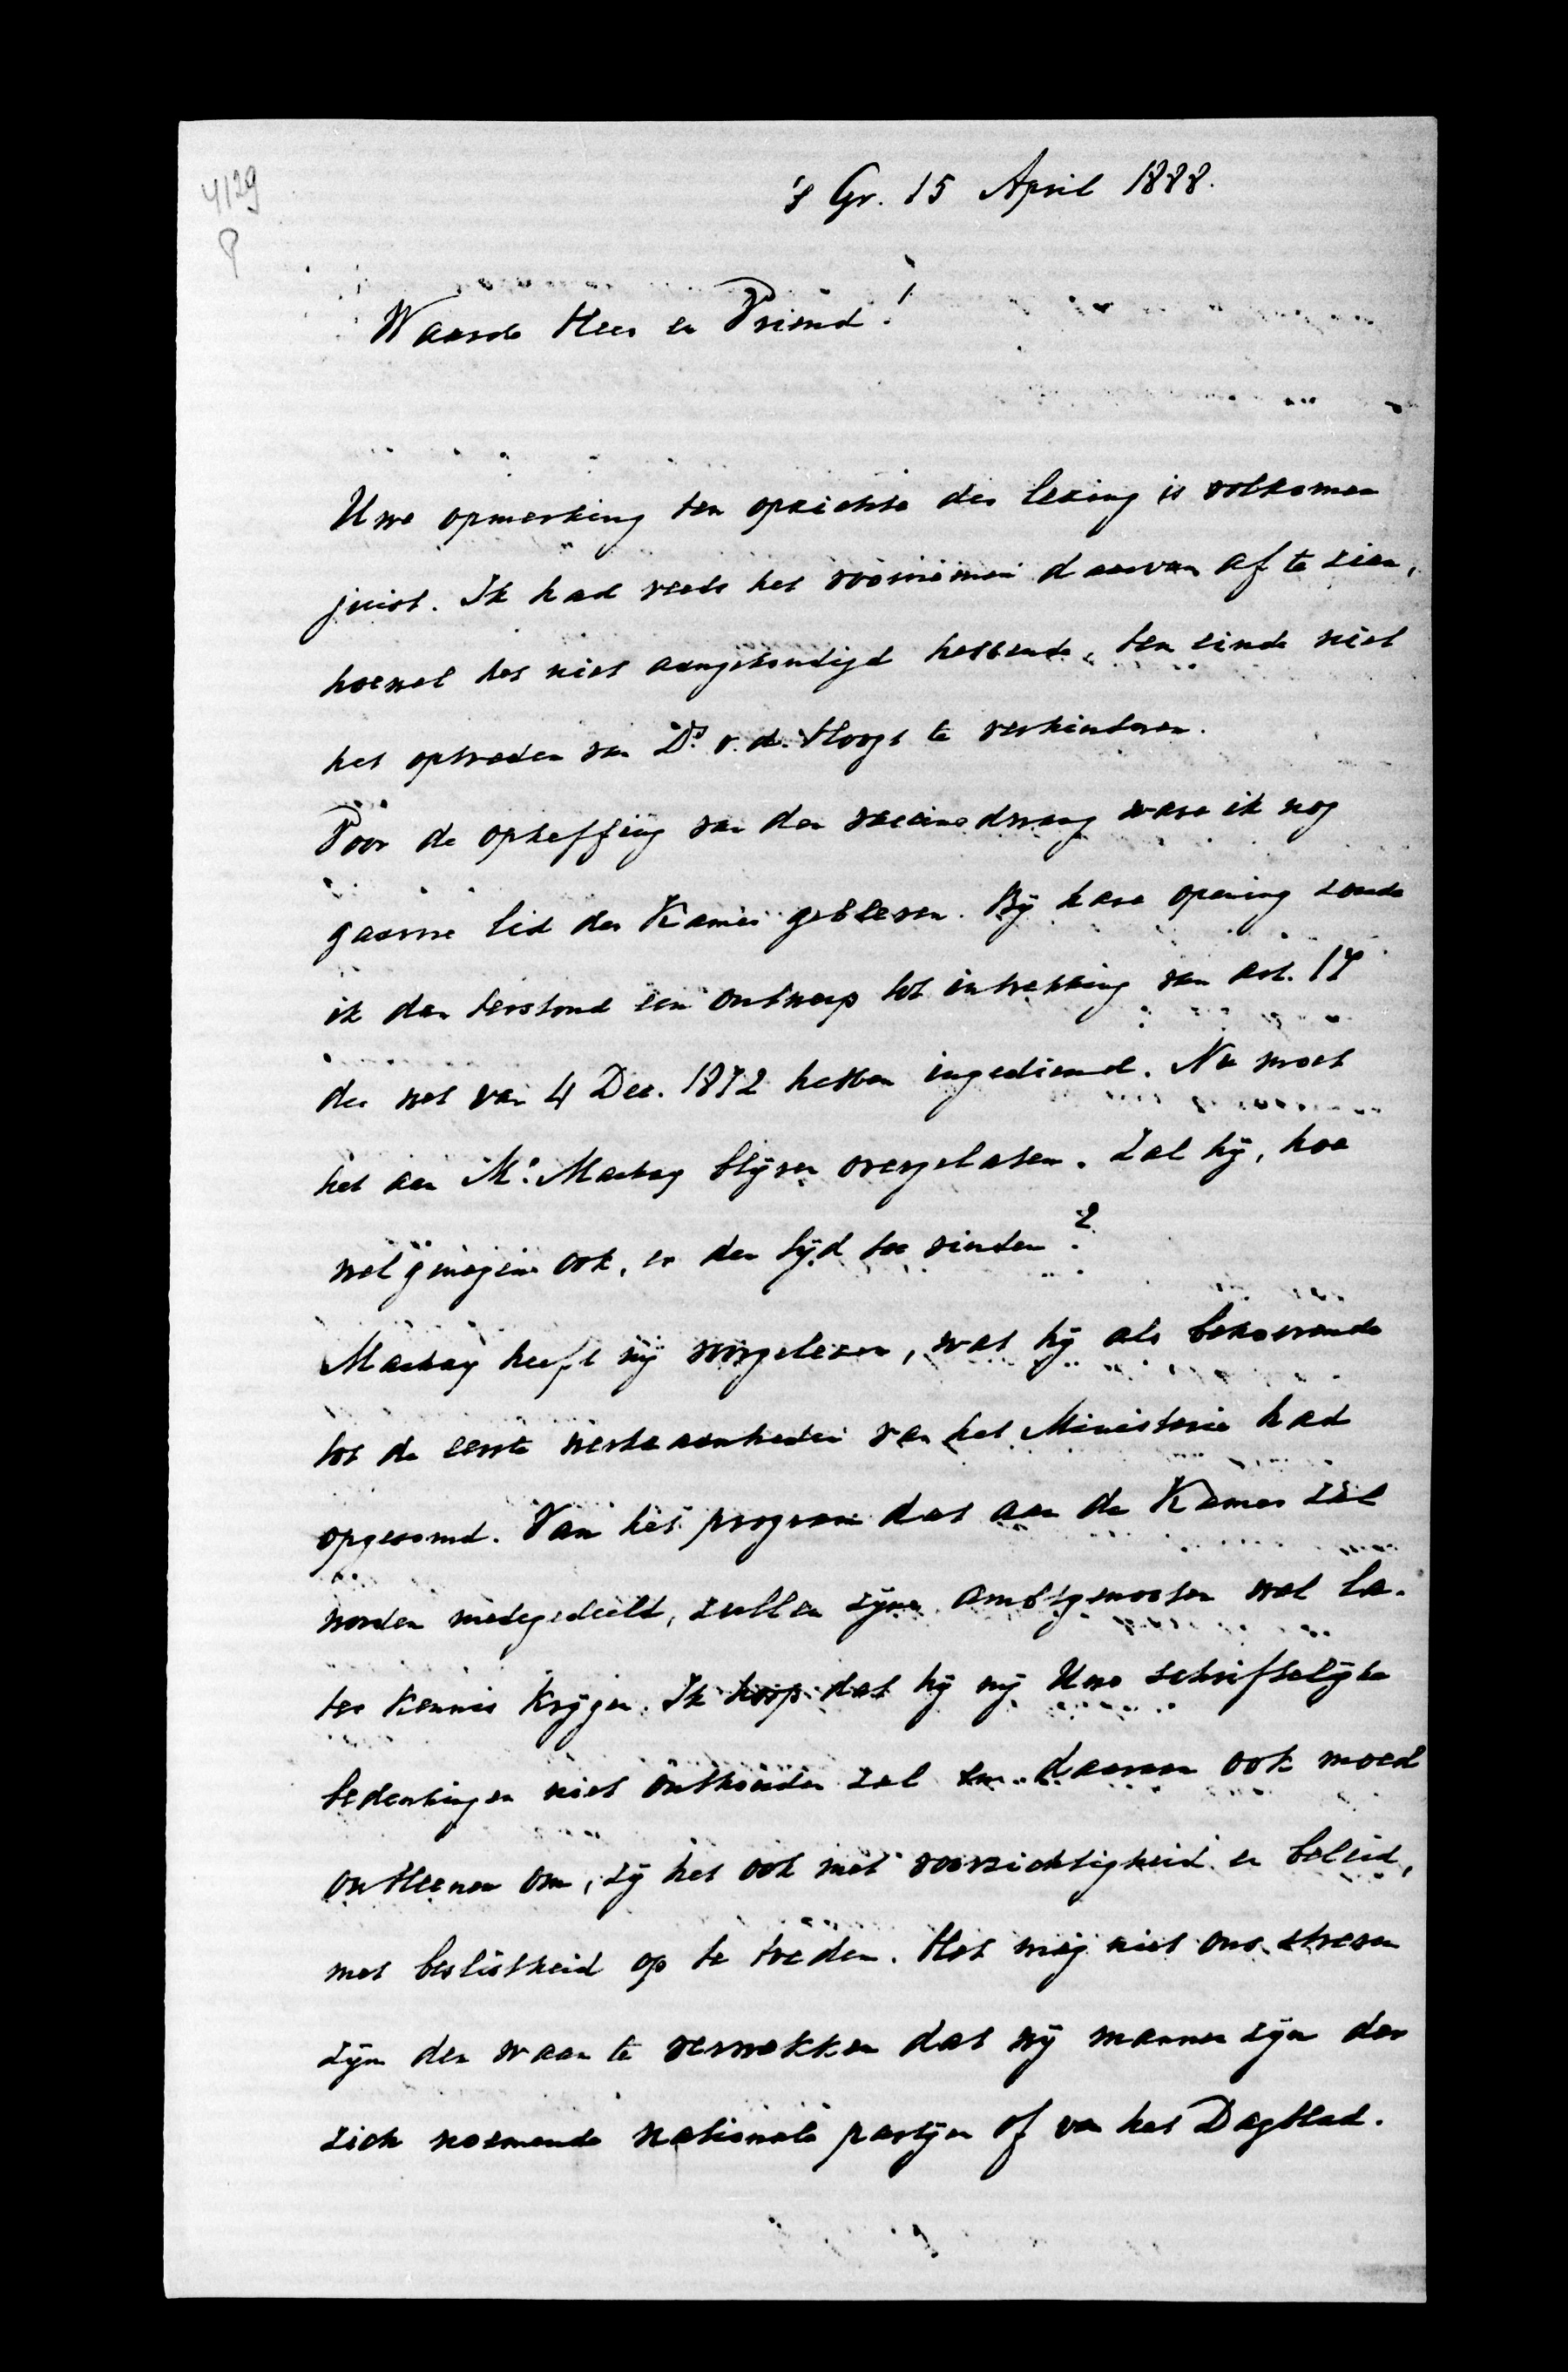 4129
P
's Gr. 15 April 1888.
Waarde Heer en Vriend!
Uwe opmerking ten opzichte der lezing is volkomen
juist. Ik had reeds het voornemen daarvan af te zien,
hoewel het niet aangekondigd hebbende, ten einde niet
het optreden van Ds. v. d. Hoogt te verhinderen.
Voor de opheffing van den vaccinedwang ware ik nog
gaarne lid der Kamer gebleven. Bij hare opening zoude
ik dan terstond een ontwerp tot intrekking van art. 17
der wet van 4 Dec. 1872 hebben ingediend. Nu moet
het aan Mr. Mackay blijven overgelaten. Zal hij, hoe
welgenegen ook, er den tijd toe vinden?
Mackay heeft mij voorgelezen, wat hij als behoorende
tot de eerste werkzaamheden van het Ministerie had
opgesomd. Van het program dat aan de Kamer zal
worden medegedeeld, zullen zijne ambtgenooten wel la-
ter kennis krijgen. Ik hoop dat hij mij Uwe schriftelijke
bedenkingen niet onthouden zal en daaraan ook moed
ontleenen om, zij het ook met voorzichtigheid en beleid,
met beslistheid op te treden. Het mag niet ons streven
zijn den waan te verwekken dat wij mannen zijn der
zich noemende nationale partijen of van het Dagblad.